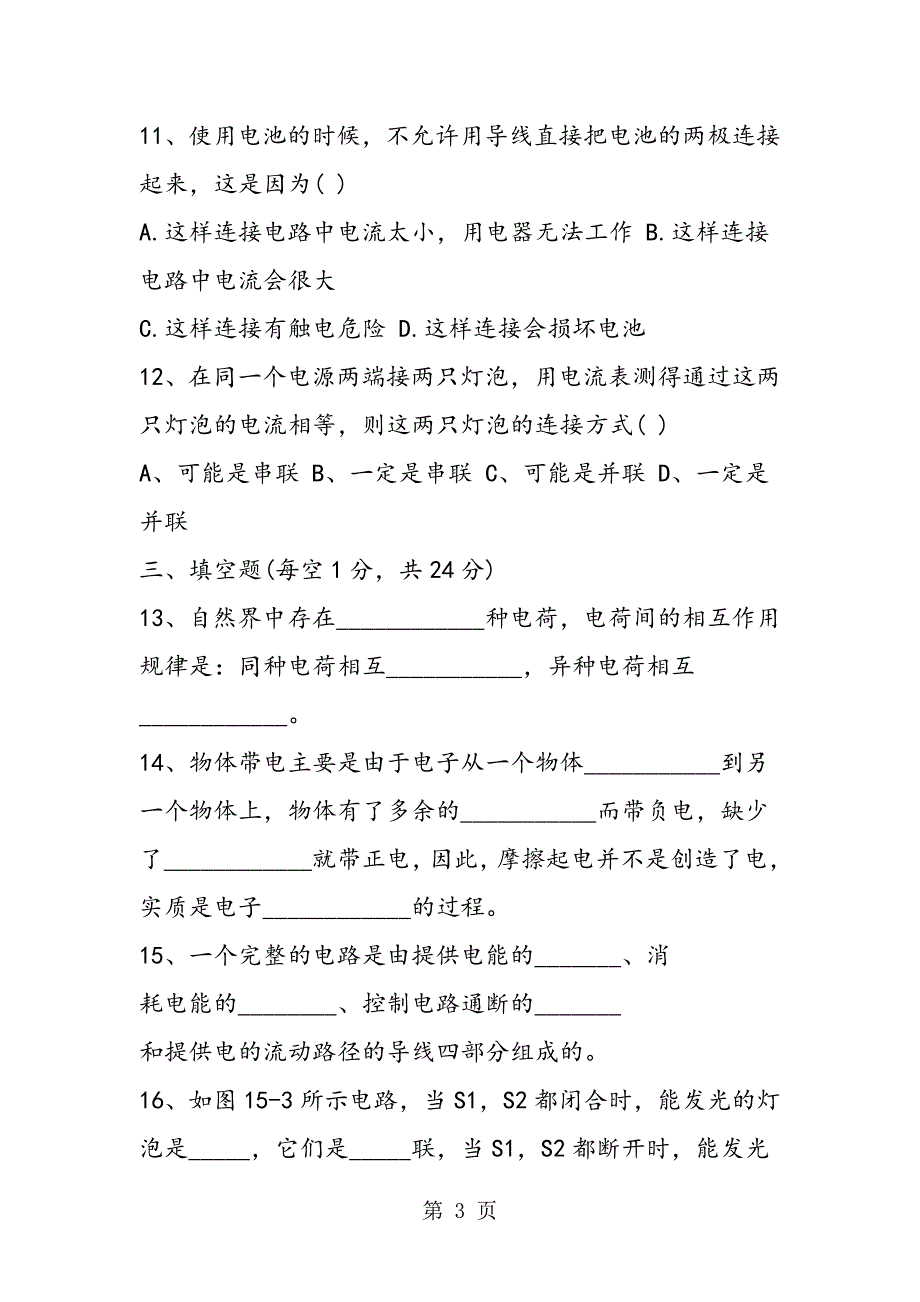 11、使用电池的时候，不允许用导线直接把电池的两极连接
起来，这是因为( )
A.这样连接电路中电流太小，用电器无法工作 B.这样连接
电路中电流会很大
C.这样连接有触电危险 D.这样连接会损坏电池
12、在同一个电源两端接两只灯泡，用电流表测得通过这两
只灯泡的电流相等，则这两只灯泡的连接方式( )
A、可能是串联 B、一定是串联 C、可能是并联 D、一定是
并联
三、填空题(每空1分，共24分)
13、自然界中存在____________种电荷，电荷间的相互作用
规律是：同种电荷相互___________，异种电荷相互
____________。
14、物体带电主要是由于电子从一个物体___________到另
一个物体上，物体有了多余的___________而带负电，缺少
了____________就带正电，因此，摩擦起电并不是创造了电，
实质是电子____________的过程。
15、一个完整的电路是由提供电能的_______、消
耗电能的________、控制电路通断的_______
和提供电的流动路径的导线四部分组成的。
16、如图15-3所示电路，当S1，S2都闭合时，能发光的灯
泡是_____，它们是_____联，当S1，S2都断开时，能发光
第 3 页